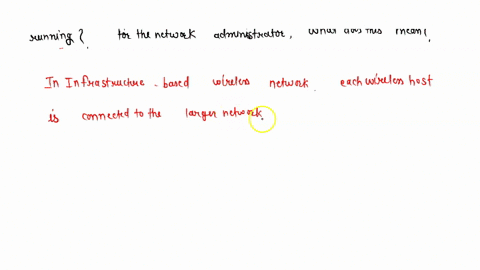 running? for the network administrator, what does this mean?
In Infrastructure - based wireless network. each wireless host
is connected to the larger network.